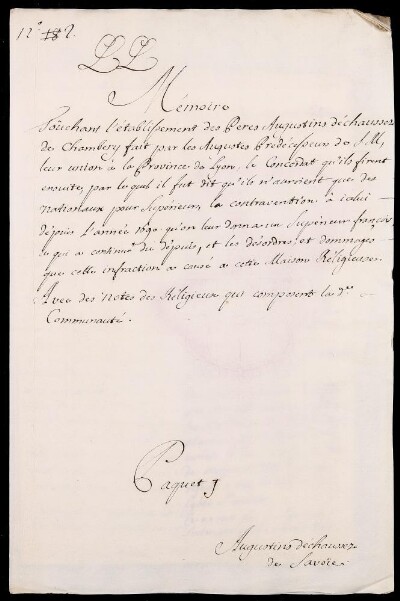 N.° 182.
LL
Mémoire
Touchant l'établissement des Peres Augustins déchaussez
de Chambéry fait par les Augustes Prédécesseur de S. M,
leur union à la Province de Lyon, le Concordat qu'ils firent
ensuite, par le quel il fut dit qu'ils n'auroient que des
nationaux pour Supérieur, la contravention à icelui
depuis l'année 1690 qu'on leur donna un Supérieur françois,
ce qui a continué du depuis, et les désordres et dommages
que cette infraction a causé a cette Maison Religieuse.
Avec des Notes des Réligieux qui composent la d.te
Communauté.
Paquet j
Augustins déchaussez
de Savoie